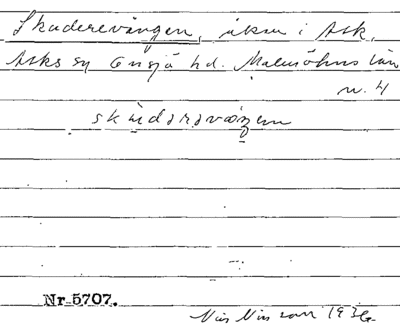 Skaderevången, åker i Ask,
Asks sn Onsjö hd. Malmöhus län
n. 4
Nr 5707.
Nils Nilsson 1936